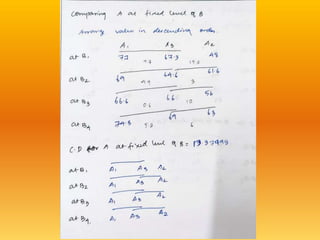 Comparing A at fixed level of B
Arrange value in descending order.
A₁ A₃ A₂
at B₁ 77 67.3 48
at B₂ 69 64.6 61.6
4.4 3
at B₃ 66.6 66 56
0.6 10
at B₄ 74.8 69 63
5.8 6
C.D for A at fixed level of B =
at B₁ A₁ A₃ A₂
at B₂ A₁ A₃ A₂
at B₃ A₁ A₃ A₂
at B₄ A₁ A₃ A₂